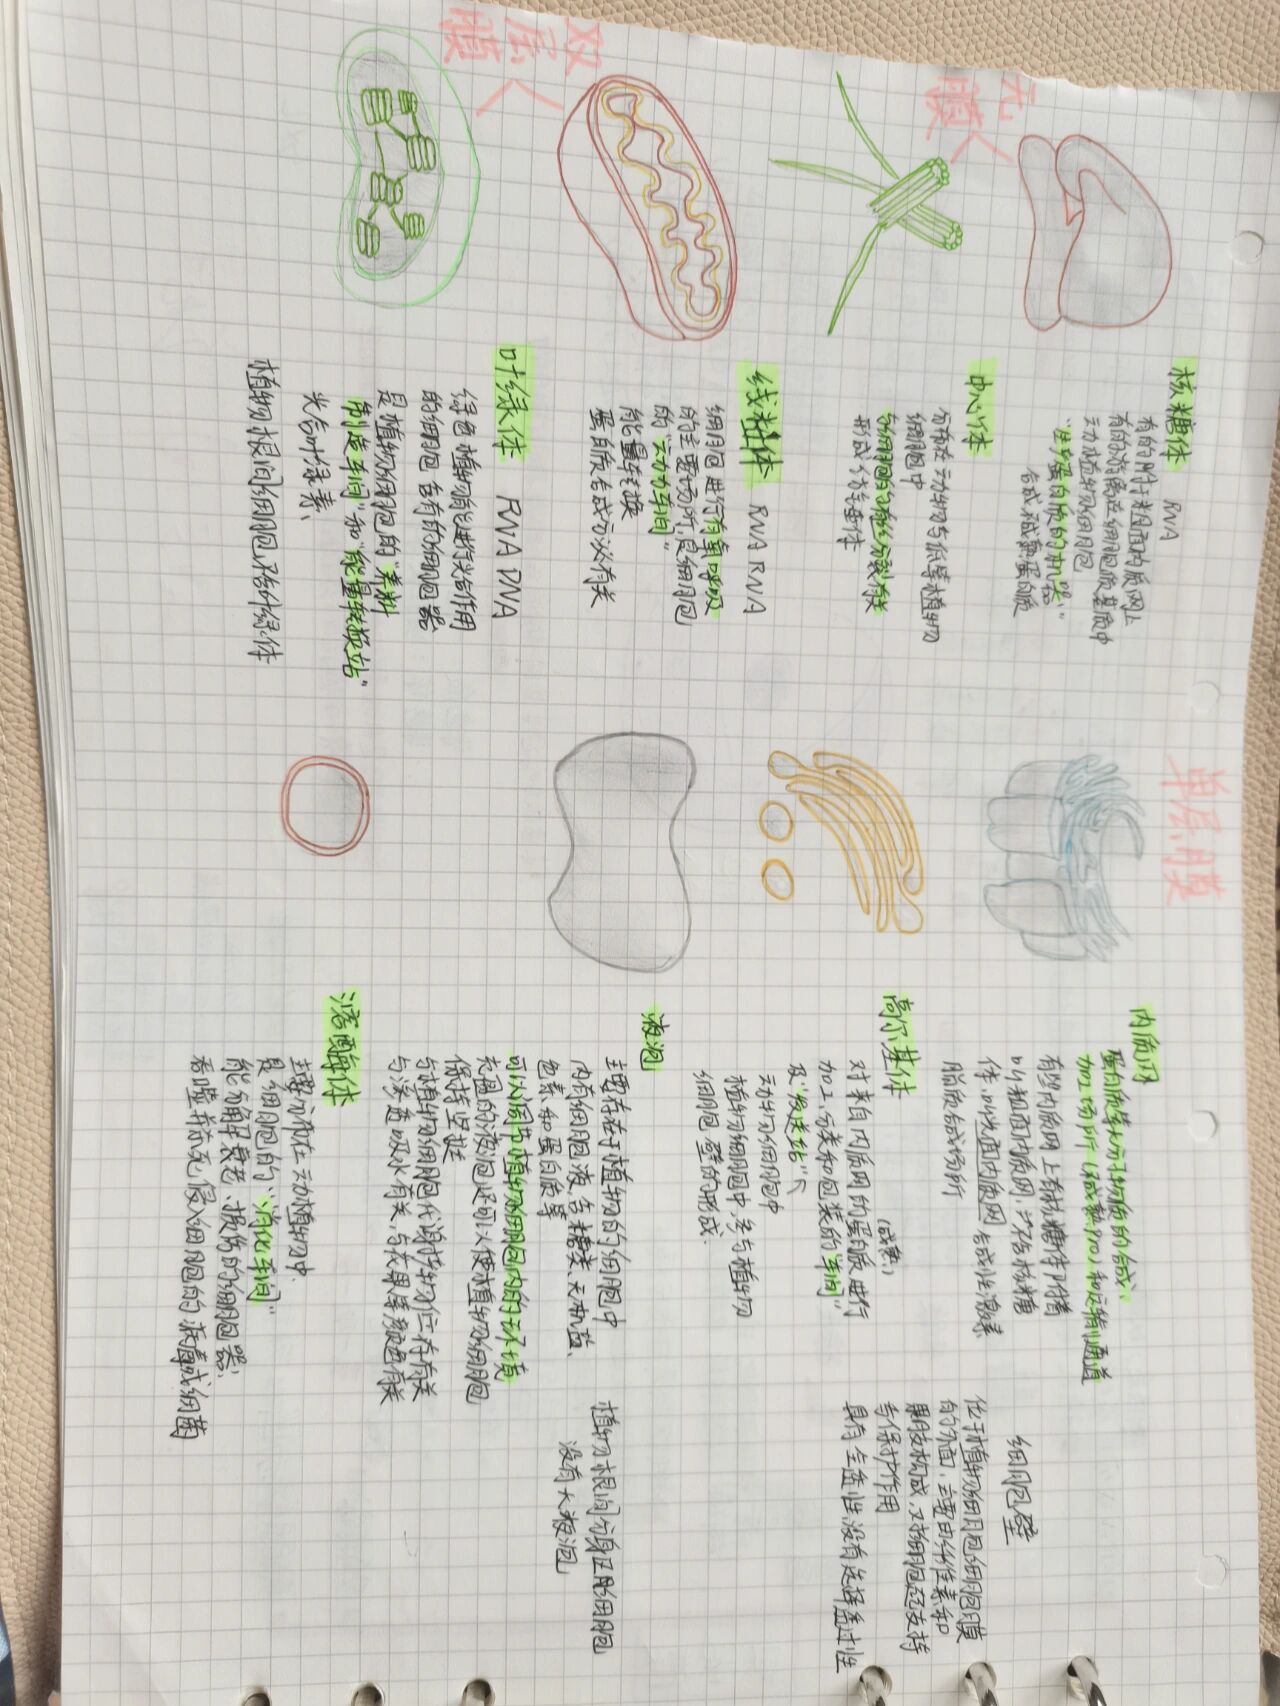 无膜
核糖体 RNA
有的附于粗面内质网上
有的游离在细胞质基质中
动植物细胞
"生产蛋白质的机器"
合成成熟蛋白质
中心体
分布在动物与低等植物
细胞中
与细胞的有丝分裂有关
形成纺锤体
双层膜
线粒体 RNA RNA
细胞进行有氧呼吸
的主要场所,是细胞
的"动力车间"
能量转换
蛋白质合成亦必有关
叶绿体 RNA DNA
绿色植物能进行光合作用
的细胞含有的细胞器
是植物细胞的"养料
制造车间"和"能量转换站"
光合叶绿素、
植物根间细胞不含叶绿体
单层膜
内质网
蛋白质等大分子物质的合成、
加工场所(不成熟Pro)和运输通道
有的内质网上有核糖体附着
叫粗面内质网,不存核糖
体,叫光面内质网 合成性激素
脂质合成场所
高尔基体
对来自内质网的蛋白质进行
(成熟)
加工,分类和包装的"车间"
及"发送站"
动物细胞中
植物细胞中,参与植物
细胞壁的形成.
液泡
主要存在于植物的细胞中
内有细胞液,含糖类、无机盐、
色素和蛋白质等
可以调节植物细胞内的环境
充盈的液泡还可以使植物细胞
保持坚挺
与植物细胞代谢废物贮存有关
与渗透吸水有关,与衣果等颜色有关
植物根间分生区的细胞
没有大液泡
溶酶体
主要分布在动植物中.
是细胞的"消化车间"
能分解衰老、损伤的细胞器,
吞噬并杀死侵入细胞的病毒或细菌
细胞壁
位于植物细胞细胞膜
的外面,主要由纤维素和
果胶构成,对细胞起支持
与保护作用
具有全透性,没有选择透过性